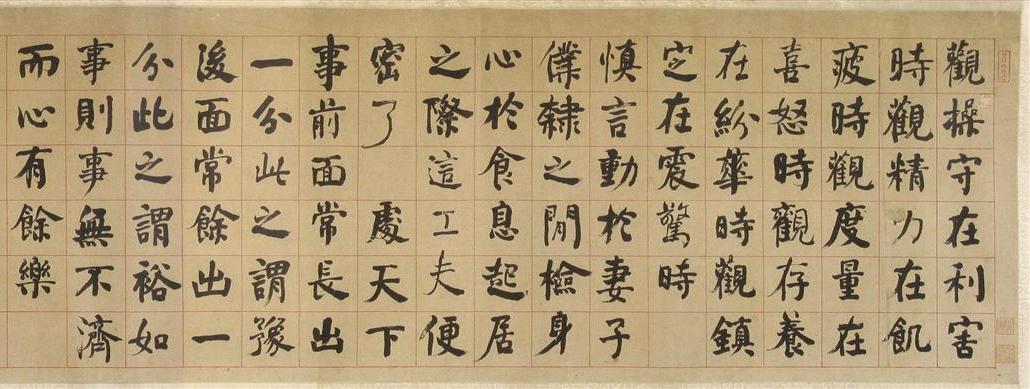 觀操守在利害
時觀精力在飢
疲時觀度量在
喜怒時觀存養
在紛華時觀鎮
定在震驚時
慎言動於妻子
僕隸之閒檢身
心於食息起居
之際這工夫便
密了 處天下
事前面常長出
一分此之謂豫
後面常餘出一
分此之謂裕如
事則事無不濟
而心有餘樂